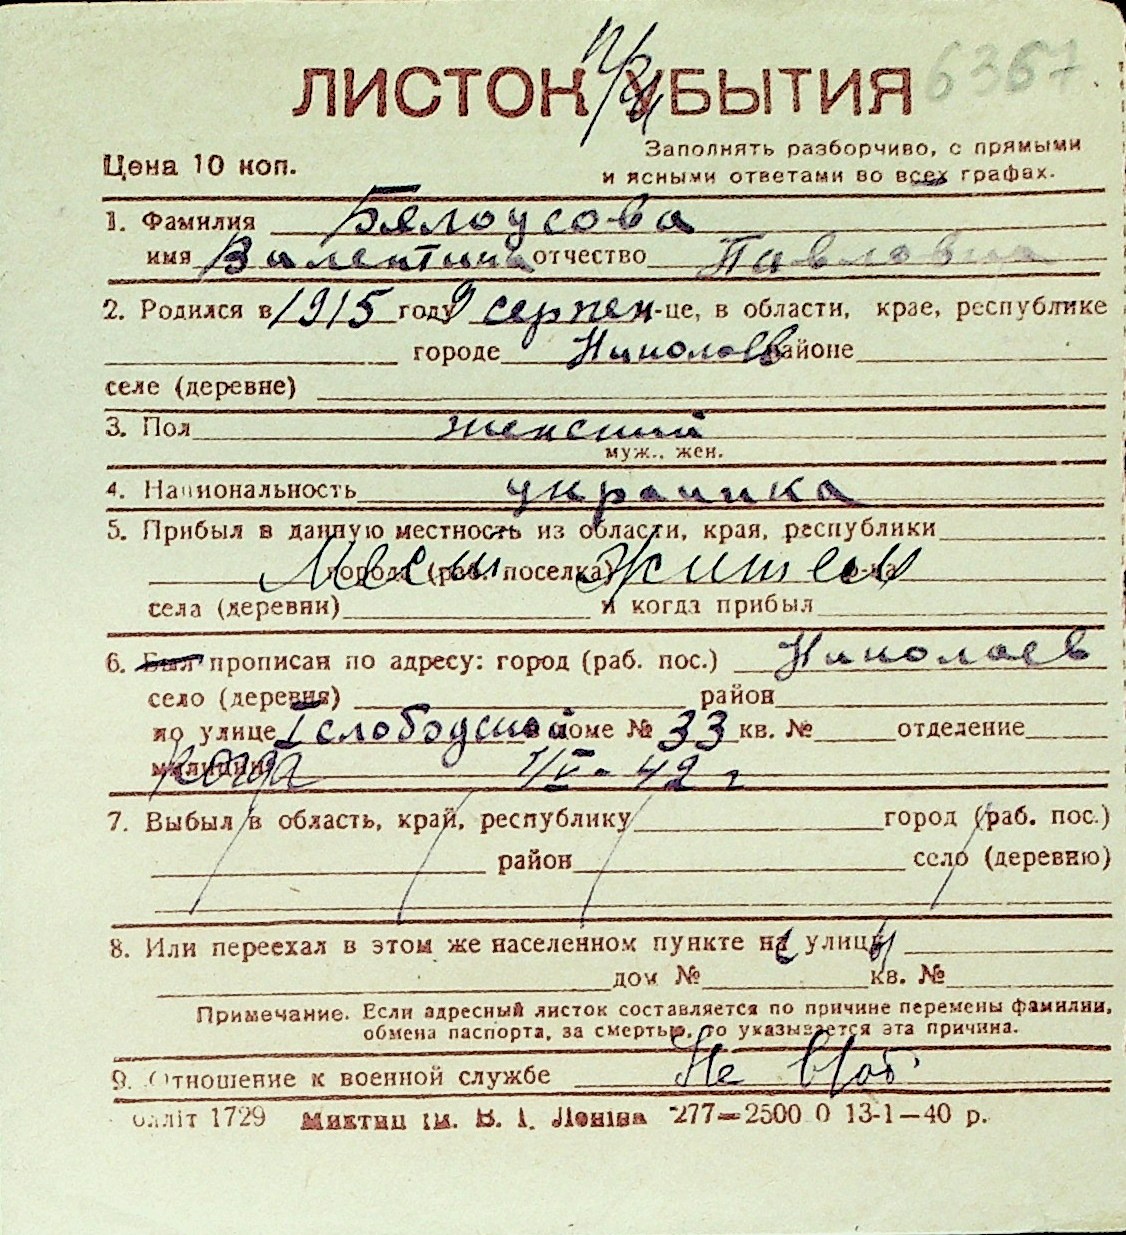 ЛИСТОК УБЫТИЯ 6367
Цена 10 коп.
Заполнять разборчиво, с прямыми
и ясными ответами во всех графах.
1. Фамилия Бялоусова
имя Валентина отчество Павловна
2. Родился в 1915 году 9 серпен-це, в области, крае, республике
городе Николаев районе
селе (деревне)
3. Пол женский
муж., жен.
4. Национальность украинка
5. Прибыл в данную местность из области, края, республики
города (раб. поселка) Жител р-на
села (деревни) и когда прибыл
6. Был прописан по адресу: город (раб. пос.) Николаев
село (деревня) район
по улице I слободской доме № 33 кв. № отделение
милиции Когда 1/IV - 42 г
7. Выбыл в область, край, республику город (раб. пос.)
район село (деревню)
8. Или переехал в этом же населенном пункте на улицу
дом № кв. №
Примечание. Если адресный листок составляется по причине перемены фамилии,
обмена паспорта, за смертью, то указывается эта причина.
9. Отношение к военной службе Не в/об
олліт 1729 Миктип ім. В. І. Леніна 277—2500 0 13-1—40 р.